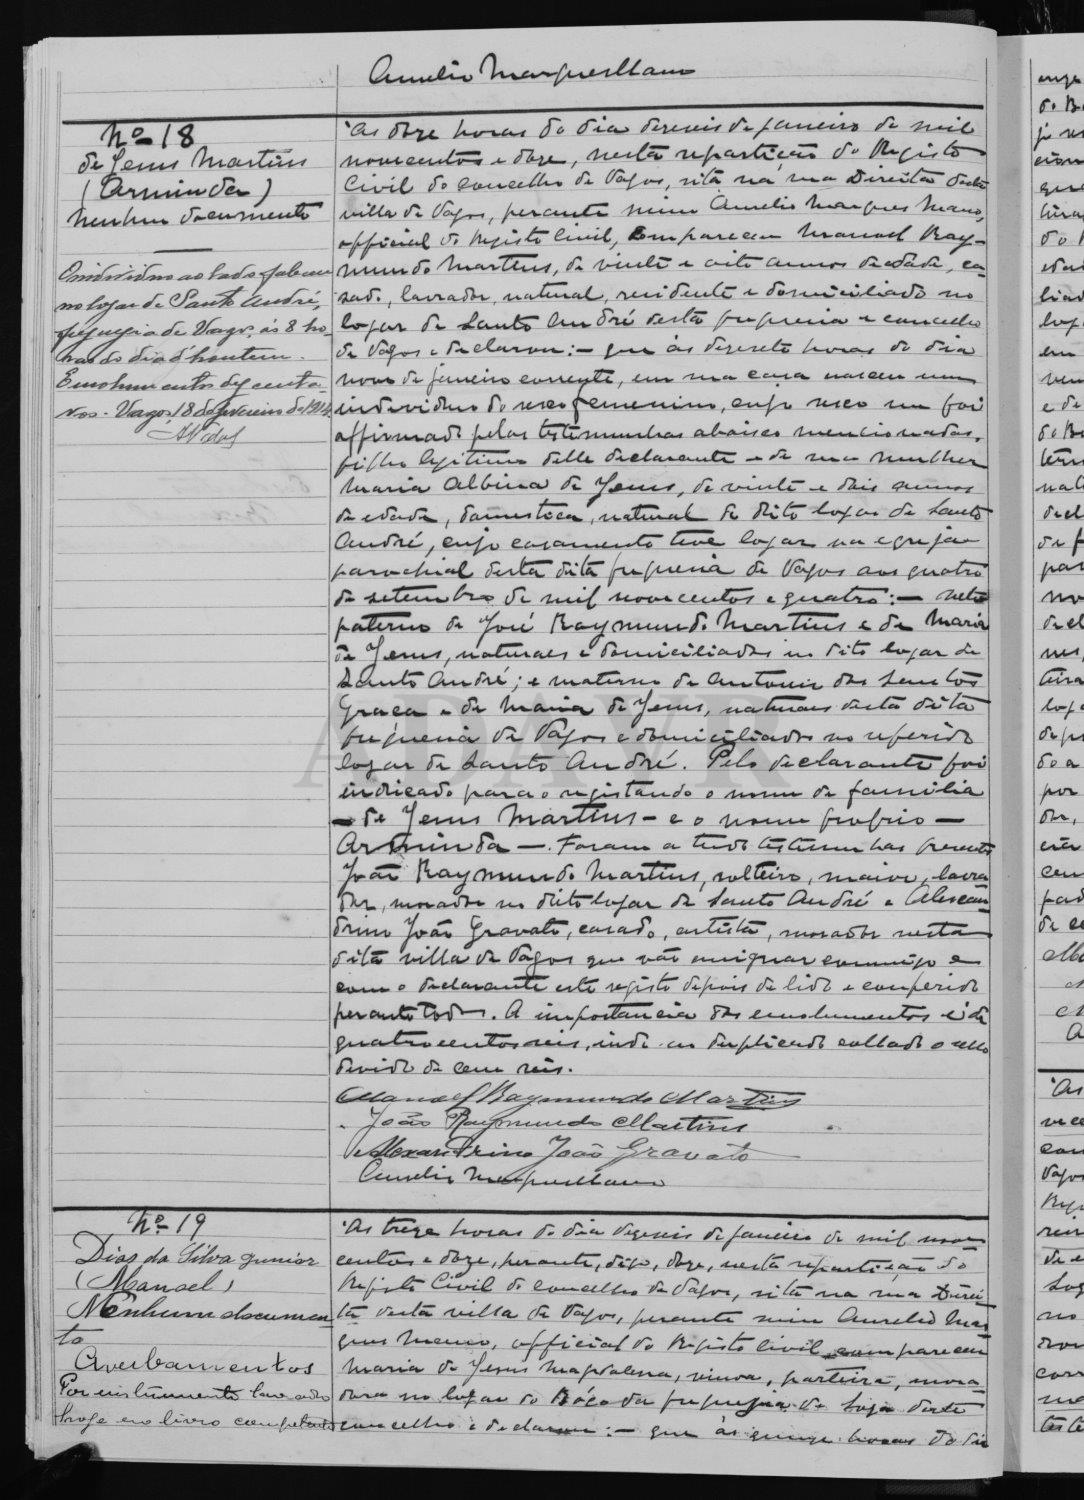 Aurelio Marques Mano
Nº 18
de Jesus Martins
(Arminda)
Nenhum documento
O individuo ao lado faleceu
no logar de Santo André,
freguezia de Vagos, ás 8 ho-
ras do dia d'hontem.
Emolumentos dez centa-
vos. Vagos, 18 de fevereiro de 1914.
As doze horas do dia dezeseis de janeiro de mil
novecentos e doze, nesta repartição do Registo
Civil do concelho de Vagos, sita na rua Direita desta
villa de Vagos, perante mim Aurelio Marques Mano,
official do Registo Civil, compareceu Manoel Ray-
mundo Martins, de vinte e oito annos de edade, ca-
sado, lavrador, natural, residente e domiciliado no
logar de Santo André desta freguesia e concelho
de Vagos e declarou: — que ás dezesete horas do dia
nove de janeiro corrente, em sua casa nasceu um
individuo do sexo femenino, cujo sexo me foi
affirmado pelas testemunhas abaixo mencionadas,
filho legitimo delle declarante e de sua mulher
Maria Albina de Jesus, de vinte e dois annos
de edade, domestica, natural do dito logar de Santo
André, cujo casamento teve logar na egreja
parochial desta dita freguesia de Vagos aos quatro
de setembro de mil novecentos e quatro: — neto
paterno de José Raymundo Martins e de Maria
de Jesus, naturaes e domiciliados no dito logar de
Santo André; e materno de Antonio dos Santos
Graça e de Maria de Jesus, naturaes desta dita
freguesia de Vagos e domiciliados no referido
logar de Santo André. Pelo declarante foi
indicado para o registando o nome de familia
— de Jesus Martins — e o nome proprio —
Arminda —. Foram a tudo testemunhas presentes
João Raymundo Martins, solteiro, maior, lavra
dor, morador no dito logar de Santo André e Alexan-
drino João Gravato, casado, artista, morador nesta
dita villa de Vagos que vão assignar commigo e
com o declarante este registo depois de lido e conferido
perante todos. A importancia dos emolumentos é de
quatrocentos reis, indo no duplicado collado o sello
devido de cem réis.
Manoel Raymundo Martins
João Raymundo Martins
Alexandrino João Gravato
Aurelio Marques Mano
Nº 19
Dias da Silva Junior
(Manoel)
Nenhum documen-
to
Averbamentos
Por instrumento lavrado
hoje no livro competente
As treze horas do dia dezeseis de janeiro de mil nove
centos e doze, perante, digo, doze, nesta repartição do
Registo Civil do concelho de Vagos, sita na rua Direi-
ta desta villa de Vagos, perante mim Aurelio Mar-
ques Mano, official do Registo Civil compareceu
Maria de Jesus Magdalena, viuva, parteira, mora-
dora no logar do da freguezia de Soza deste
concelho e declarou: — que ás quinze horas do dia
ADAVR